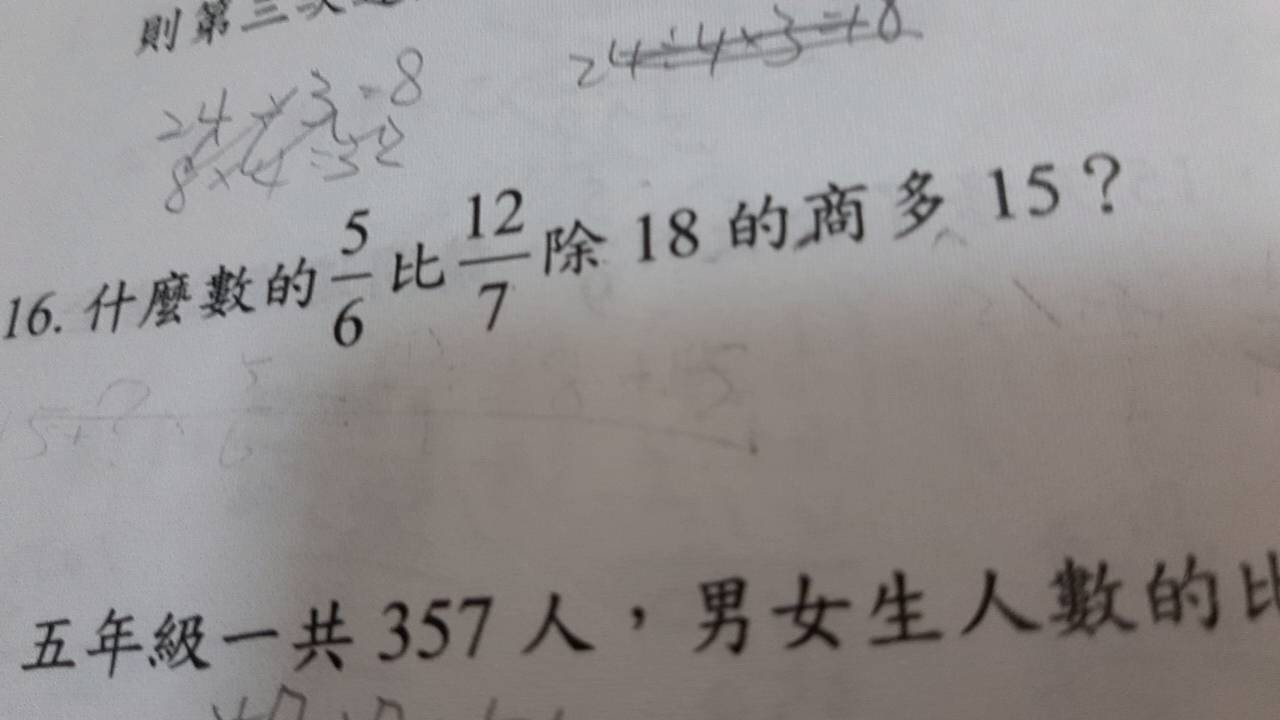 則第三次
24÷4×3=18
24÷3=8
8×4=32
16. 什麼數的 5/6 比 12/7 除 18 的商多 15？
五年級一共 357 人，男女生人數的比